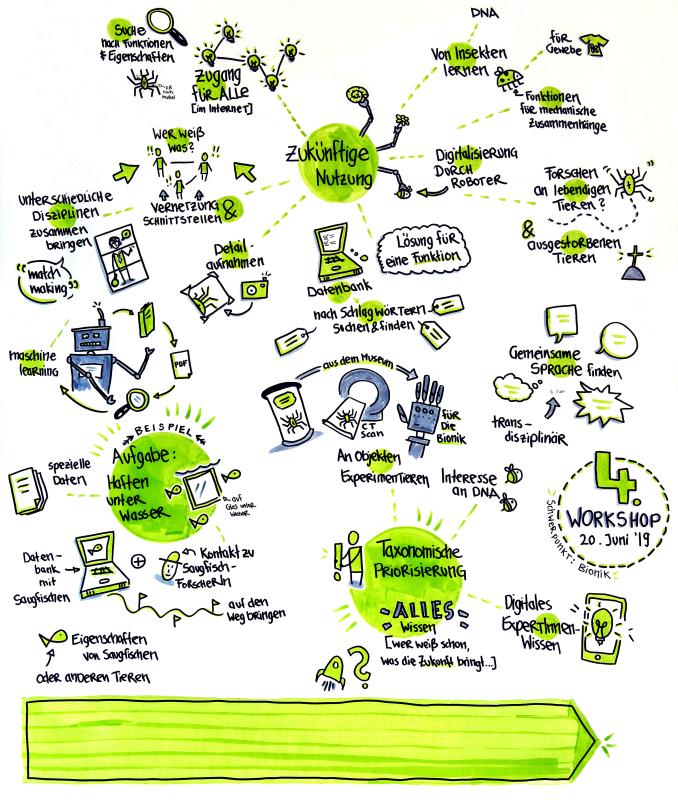 Suche
nach Funktionen
& Eigenschaften
Zugang
für ALLE
[im Internet]
DNA
Von Insekten
lernen
für
Gewebe
Funktionen
für mechanische
Zusammenhänge
Zukünftige
Nutzung
Digitalisierung
DURCH
ROBOTER
Forschen
an lebendigen
Tieren?
&
ausgestorbenen
Tieren
Wer weiß
was?
Vernetzung &
SCHNITTSTELLEN
unterschiedliche
Disziplinen
zusammen
bringen
"match
making"
maschine
learning
PDF
Detail-
aufnahmen
Datenbank
nach Schlagwörtern
suchen & finden
Lösung für
eine Funktion
Gemeinsame
SPRACHE finden
trans-
disziplinär
aus dem Museum
CT
Scan
für
Die
Bionik
An Objekten
Experimentieren
BEISPIEL
Aufgabe:
Haften
unter
Wasser
auf
Glas unter
Wasser
spezielle
Daten
Daten-
bank
mit
Saugfischen
Kontakt zu
Saugfisch-
ForscherIn
auf den
Weg bringen
Eigenschaften
von Saugfischen
oder anderen Tieren
Interesse
an DNA
Taxonomische
Priorisierung
ALLES
Wissen
[wer weiß schon,
was die Zukunft bringt...]
?
Digitales
ExpertInnen-
Wissen
4.
WORKSHOP
20. Juni '19
Schwerpunkt: Bionik